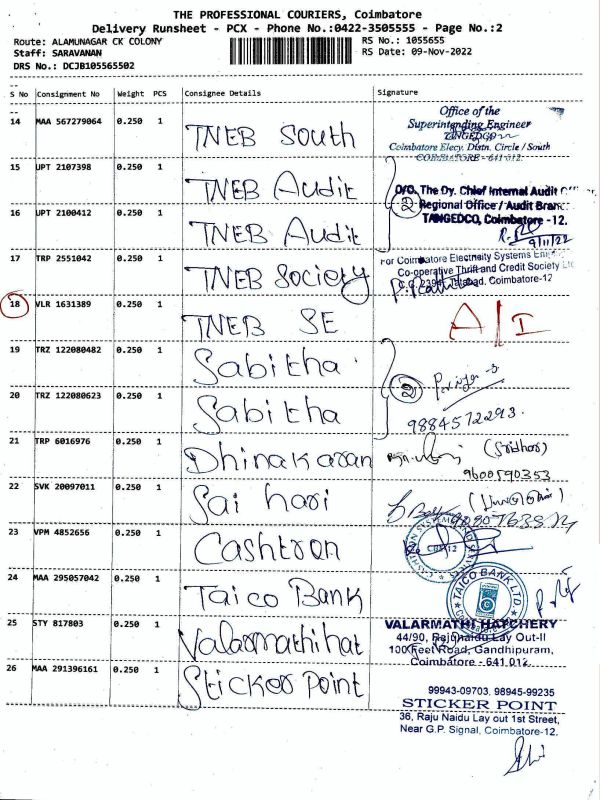 THE PROFESSIONAL COURIERS, Coimbatore
Delivery Runsheet - PCX - Phone No.:0422-3505555 - Page No.:2
Route: ALAMUNAGAR CK COLONY
RS No.: 1055655
Staff: SARAVANAN
RS Date: 09-Nov-2022
DRS No.: DCJB105565502
S No Consignment No Weight PCS Consignee Details Signature
14 MAA 567279064 0.250 1 TNEB South
Office of the
Superintending Engineer
TANGEDCO
Coimbatore Elecy. Distn. Circle / South
COIMBATORE - 641 012.
15 UPT 2107398 0.250 1 TNEB Audit
O/O. The Dy. Chief Internal Audit
2 Regional Office / Audit Branc
TANGEDCO, Coimbatore - 12.
9/11/22
16 UPT 2100412 0.250 1 TNEB Audit
17 TRP 2551042 0.250 1 TNEB Society
For Coimbatore Electricity Systems
Co-operative Thrift and Credit Society Ltd
Coimbatore-12
18 VLR 1631389 0.250 1 TNEB SE
A/I
19 TRZ 122080482 0.250 1 Sabitha
20 TRZ 122080623 0.250 1 Sabitha
2
9884572293
21 TRP 6016976 0.250 1 Dhinakaran
(Sridhar)
9600590353
22 SVK 20097011 0.250 1 Sai hari
23 VPM 4852656 0.250 1 Cashtron
CBE-12
24 MAA 295057042 0.250 1 Taico Bank
TAICO BANK LTD.
25 STY 817803 0.250 1 Valarmathi hat
VALARMATHI HATCHERY
44/90, Rajunaidu Lay Out-II
100 Feet Road, Gandhipuram,
Coimbatore - 641 012.
26 MAA 291396161 0.250 1 Sticker Point
99943-09703, 98945-99235
STICKER POINT
36, Raju Naidu Lay out 1st Street,
Near G.P. Signal, Coimbatore-12.